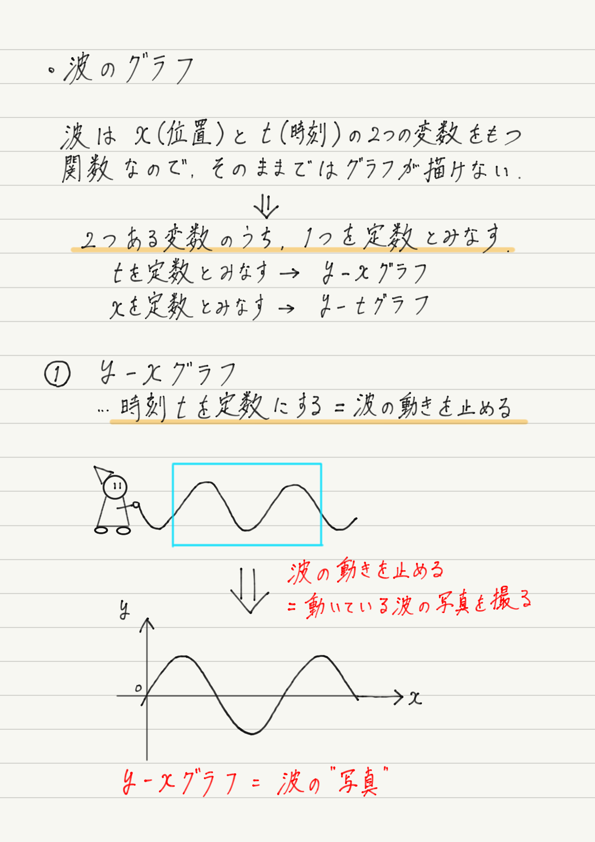 ・波のグラフ
波は x(位置)と t(時刻)の2つの変数をもつ
関数なので、そのままではグラフが描けない.
2つある変数のうち、1つを定数とみなす.
tを定数とみなす → y-xグラフ
xを定数とみなす → y-tグラフ
① y-xグラフ
… 時刻tを定数にする = 波の動きを止める
波の動きを止める
= 動いている波の写真を撮る
y
0
x
y-xグラフ = 波の"写真"